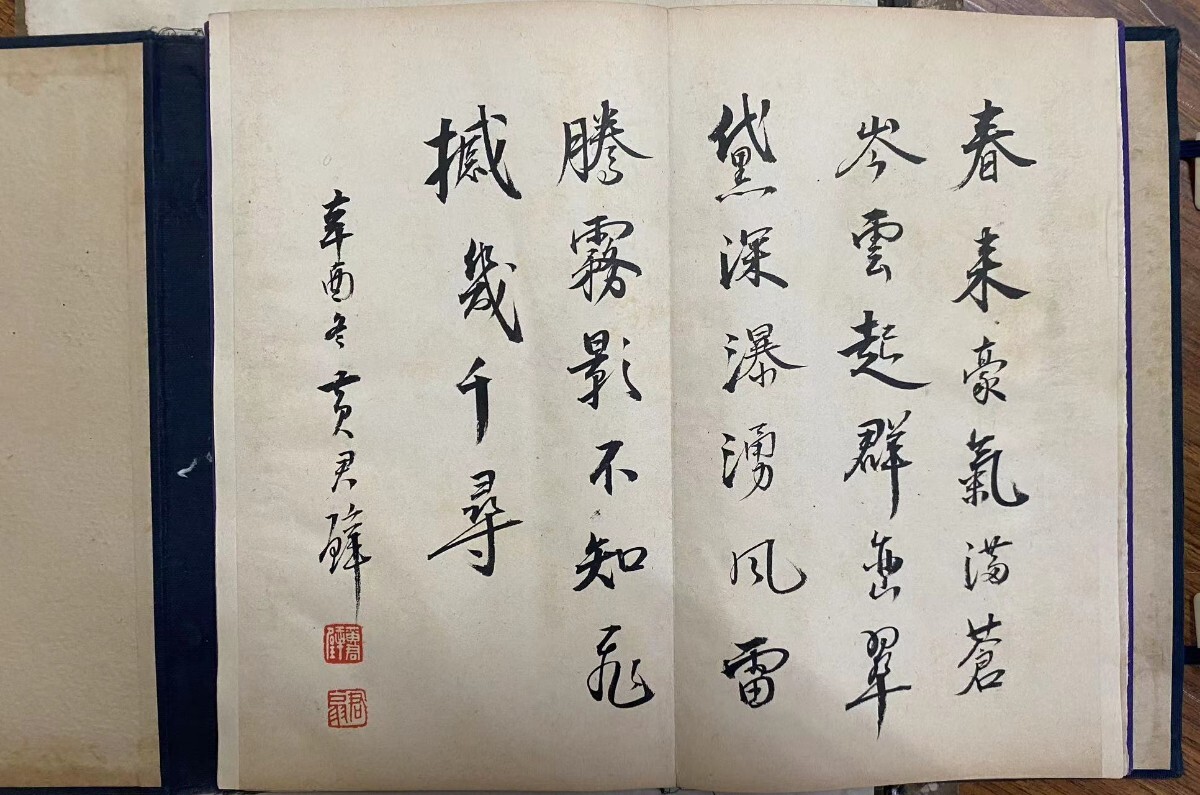 春来豪氣滿蒼
岑雲起群峦翠
黛深瀑湧風雷
騰霧影不知飛
撼幾千尋
辛酉冬 黃君璧
黃君璧
君翁